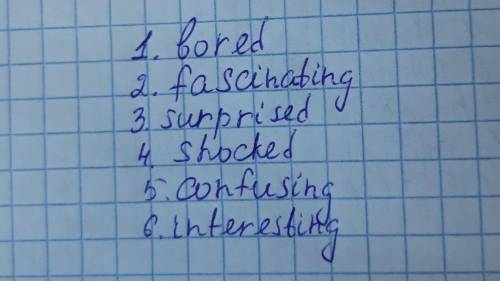 1. bored
2. fascinating
3. surprised
4. shocked
5. confusing
6. interesting